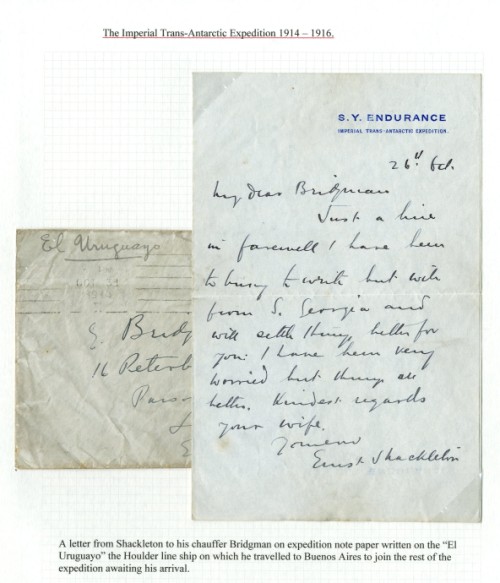 The Imperial Trans-Antarctic Expedition 1914 – 1916.
S.Y. ENDURANCE
IMPERIAL TRANS-ANTARCTIC EXPEDITION.
26th Oct.
My dear Bridgman
Just a line
in farewell I have been
to busy to write but will
from S. Georgia and
will settle things better for
you. I have been very
worried but things are
better. Kindest regards
your wife.
Ernest Shackleton
El Uruguayo
E. Bridg
16 Peterb
Parso
A letter from Shackleton to his chauffer Bridgman on expedition note paper written on the “El
Uruguayo” the Houlder line ship on which he travelled to Buenos Aires to join the rest of the
expedition awaiting his arrival.